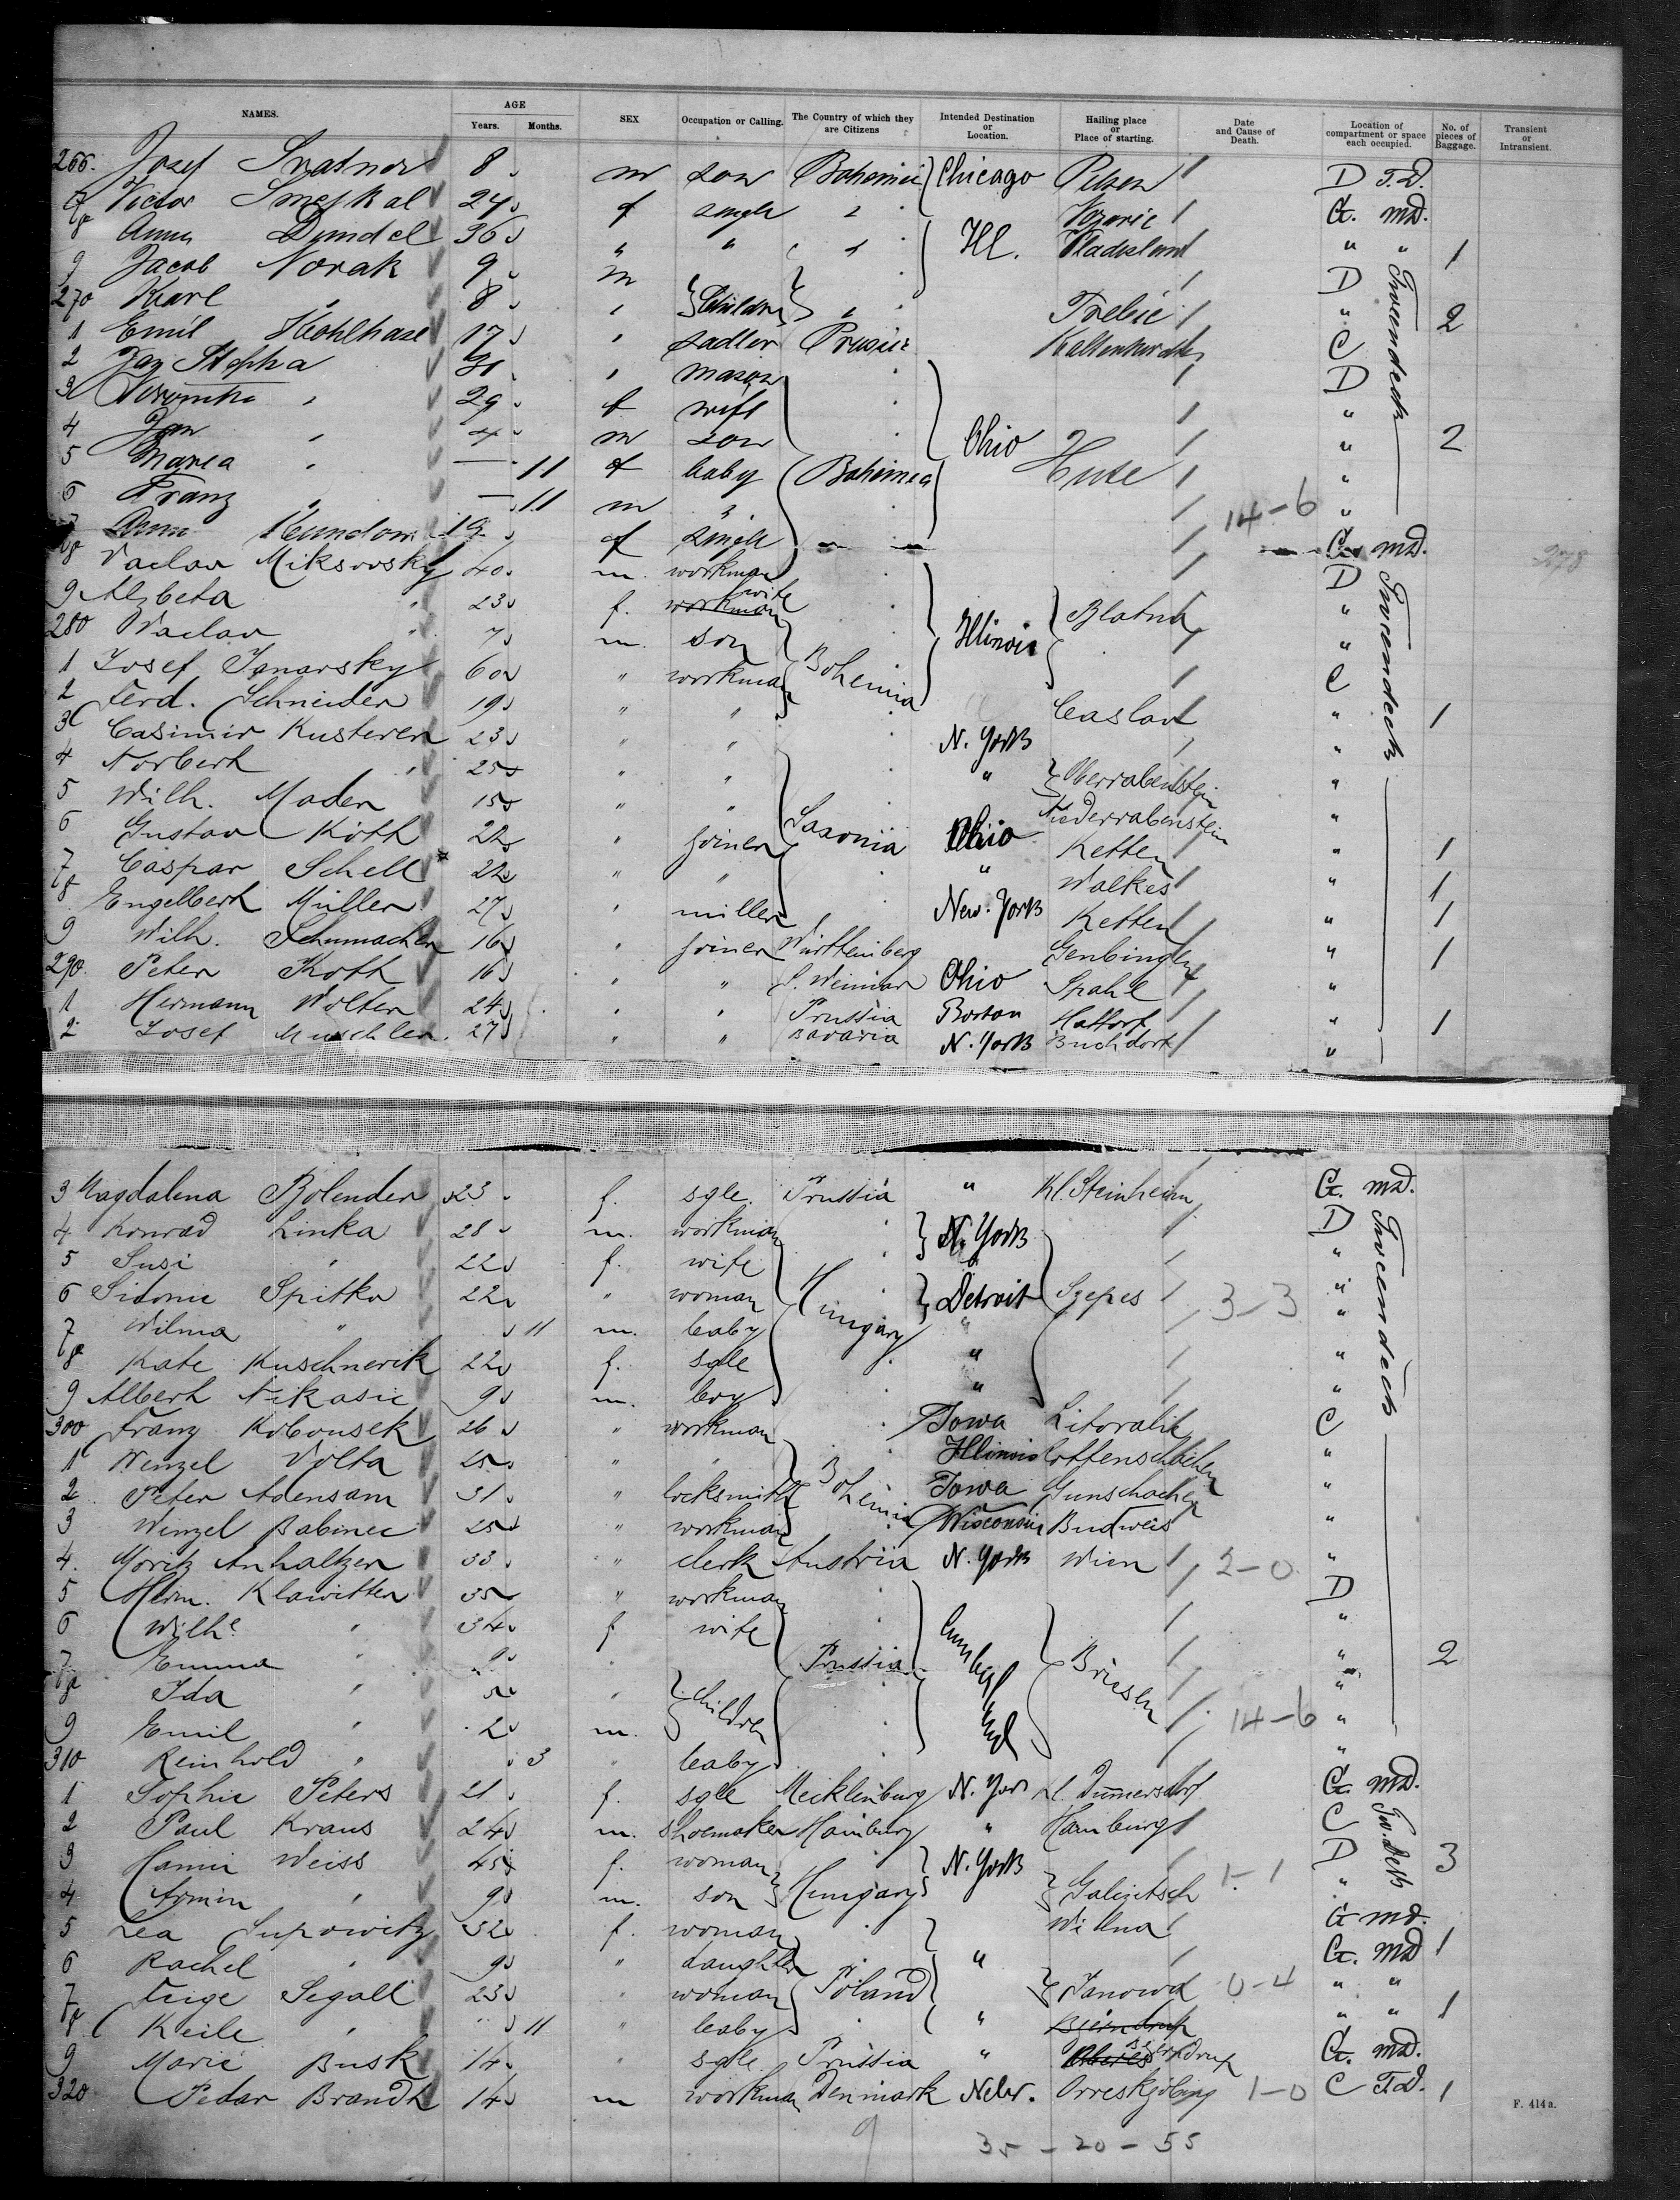 NAMES. AGE Years. Months. SEX Occupation or Calling. The Country of which they are Citizens Intended Destination or Location. Hailing place or Place of starting. Date and Cause of Death. Location of compartment or space each occupied. No. of pieces of Baggage. Transient or Intransient.
266. Josef 8 m son Bohemia Chicago Pilsen D T.D.
7 Victor Smejkal 24 f single " G. md.
8 Anna Dundel 36 " " " Ill. " " 1
9 Jacob Novak 9 m D Tweendeck
270 Karl " 8 " Children " Trebic " 2
1 Emil Kohlhase 17 " sadler Prussia C
2 Jan Stepha 31 " mason D
3 " 29 f wife "
4 Jan " 4 m son Ohio " 2
5 Marea " — 11 f baby Bohemia "
6 Franz " — 11 m " 14-6 "
7 Anna 19 f single G. md.
8 Vaclav Miksovsky 40 m. workman D Tweendeck 278
9 Alzbeta " 23 f. workman wife Illinois Blatna "
280 Vaclav " 7 m. son "
1 Josef Janarsky 60 " workman Bohemia C
2 Ferd. Schneider 19 " " Caslau " 1
3 Casimir Kusterer 23 " " N. York "
4 Norbert " 25 " " " Oberrabenstein "
5 Wilh. Mader 15 " " Niederrabenstein "
6 Gustav Köth 22 " joiner Saxonia Ohio Ketten " 1
7 Caspar Schell * 22 " " " Walkes " 1
8 Engelbert Müller 27 " miller New-York Ketten " 1
9 Wilh. Schumacher 16 " joiner Württemberg Genbingen " 1
290. Peter Kott 16 " " S. Weimar Ohio Spahl "
1 Hermann Wolter 24 " " Prussia Boston Hattorf " 1
2 Josef Muschler. 27 " " Bavaria N. York Buchdorf "
3 Magdalena Bolender 23 f. sgle. Prussia " Kl. Steinheim G. md.
4 Konrad Linka 28 m. workman N. York D Tweendeck
5 Susi " 22 f. wife "
6 Sidonie Spitka 22 " woman Hungary Detroit Szepes 3-3 "
7 Wilma " 11 m. baby " "
8 Kate Kuschnerik 22 f. sgle " "
9 Albert Nekasic 9 m. boy " "
300 Franz Kobousek 26 " workman Iowa Litoralic C
1 Wenzel Volta 25 " " Bohemia Illinois "
2 Peter Adensam 31 " locksmith Iowa Gunschachen "
3 Wenzel Babinec 25 " workman Wisconsin Budweis "
4. Moritz Anhaltzer 33 " clerk Austria N. York Wien 2-0 "
5 Herm. Klawitter 35 " workman D
6 Wilhe " 34 f wife "
7 Emma " 9 " Prussia Briesen " 2
8 Ida " 5 " children "
9 Emil " 2 m. 14-6 "
310 Reinhold " 3 " baby "
1 Sophie Peters 21 f. sgle Mecklenburg N. York Dummersdorf G. md.
2 Paul Kraus 24 m. shoemaker Hamburg " Hamburg C Tw. Deck
3 Hanni Weiss 45 f. woman N. York 1-1 D 3
4 Armin " 9 m. son Hungary Galizisch "
5 Lea Supowitz 32 f. woman Wilna G md.
6 Rachel " 9 " daughter " G. md 1
7 Feige Segall 23 " woman Poland Janowa 0-4 " "
8 Keile " 11 " baby " Bjerndrup " " 1
9 Marie Busk 14 " sgle. Prussia " Bjerndrup G. md.
320 Pedar Brandt 14 m workman Denmark Nebr. Orreskjöbing 1-0 C T.D. 1
F. 414 a.
9 35 - 20 - 55